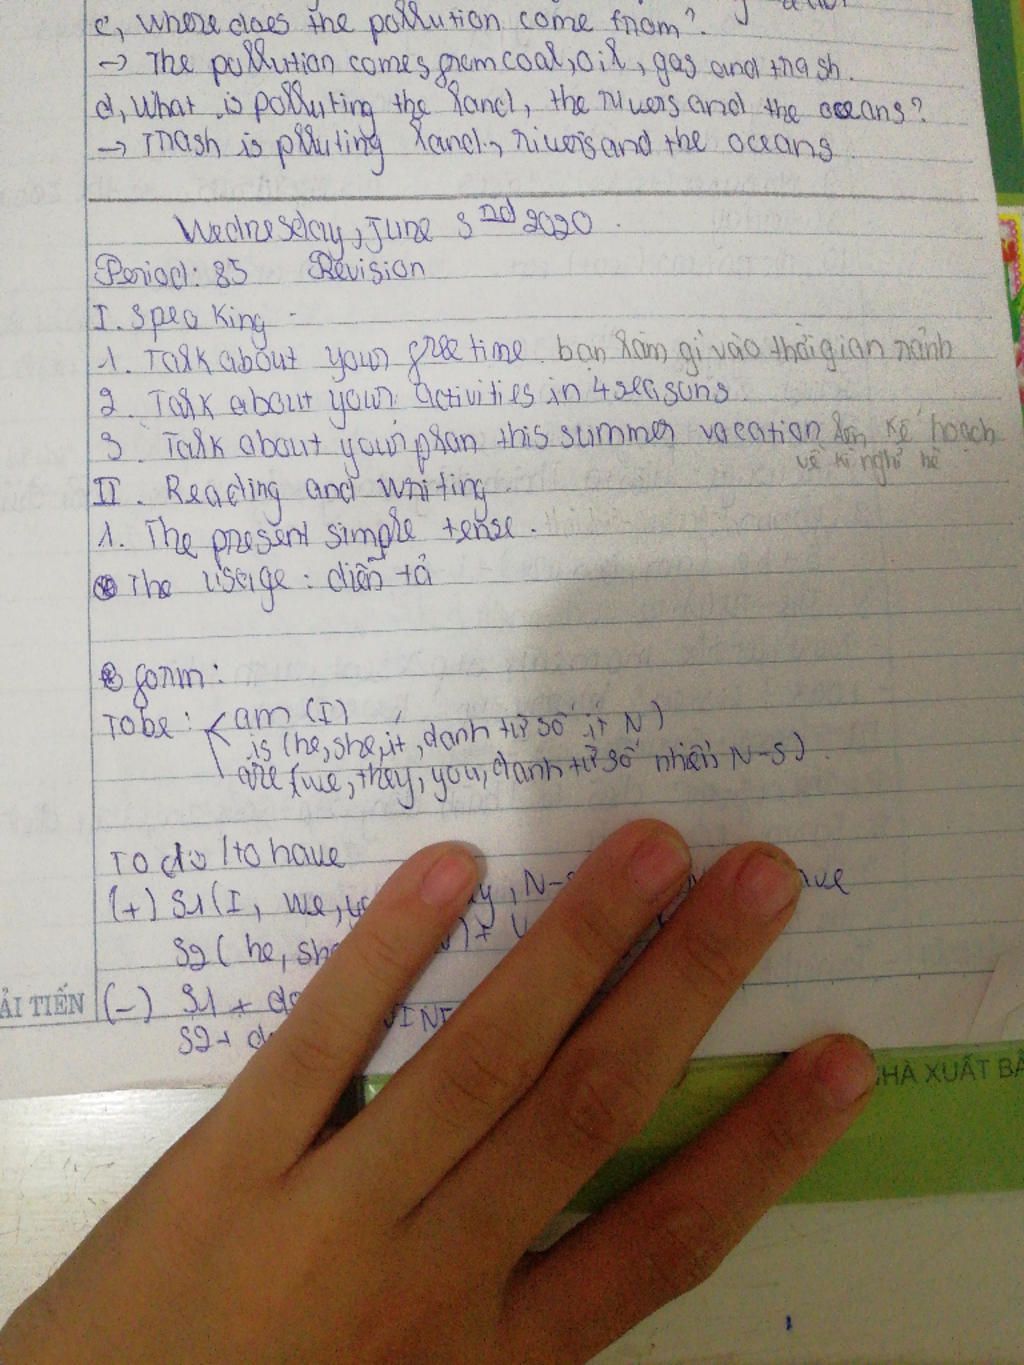 c, Where does the pollution come from?
→ The pollution comes from coal, oil, gas and trash.
d, What is polluting the land, the rivers and the oceans?
→ Trash is plluting land, rivers and the oceans
Wednesday, June 3nd 2020.
Period: 85 Revision
I. Speaking
1. Talk about your free time bạn làm gì vào thời gian rảnh
2. Talk about your activities in 4 seasons.
3. Talk about your plan this summer vacation làm kế hoạch
về kì nghỉ hè
II. Reading and writing.
1. The present simple tense.
The usage: diễn tả
form:
Tobe: am (I)
is (he, she, it, danh từ số ít N)
are (we, they, you, danh từ số nhiều N-s).
To do / to have
(+) S1 (I, we,
S2 (he, she
ẢI TIẾN (-) S1 +
S2 +
NHÀ XUẤT BẢ